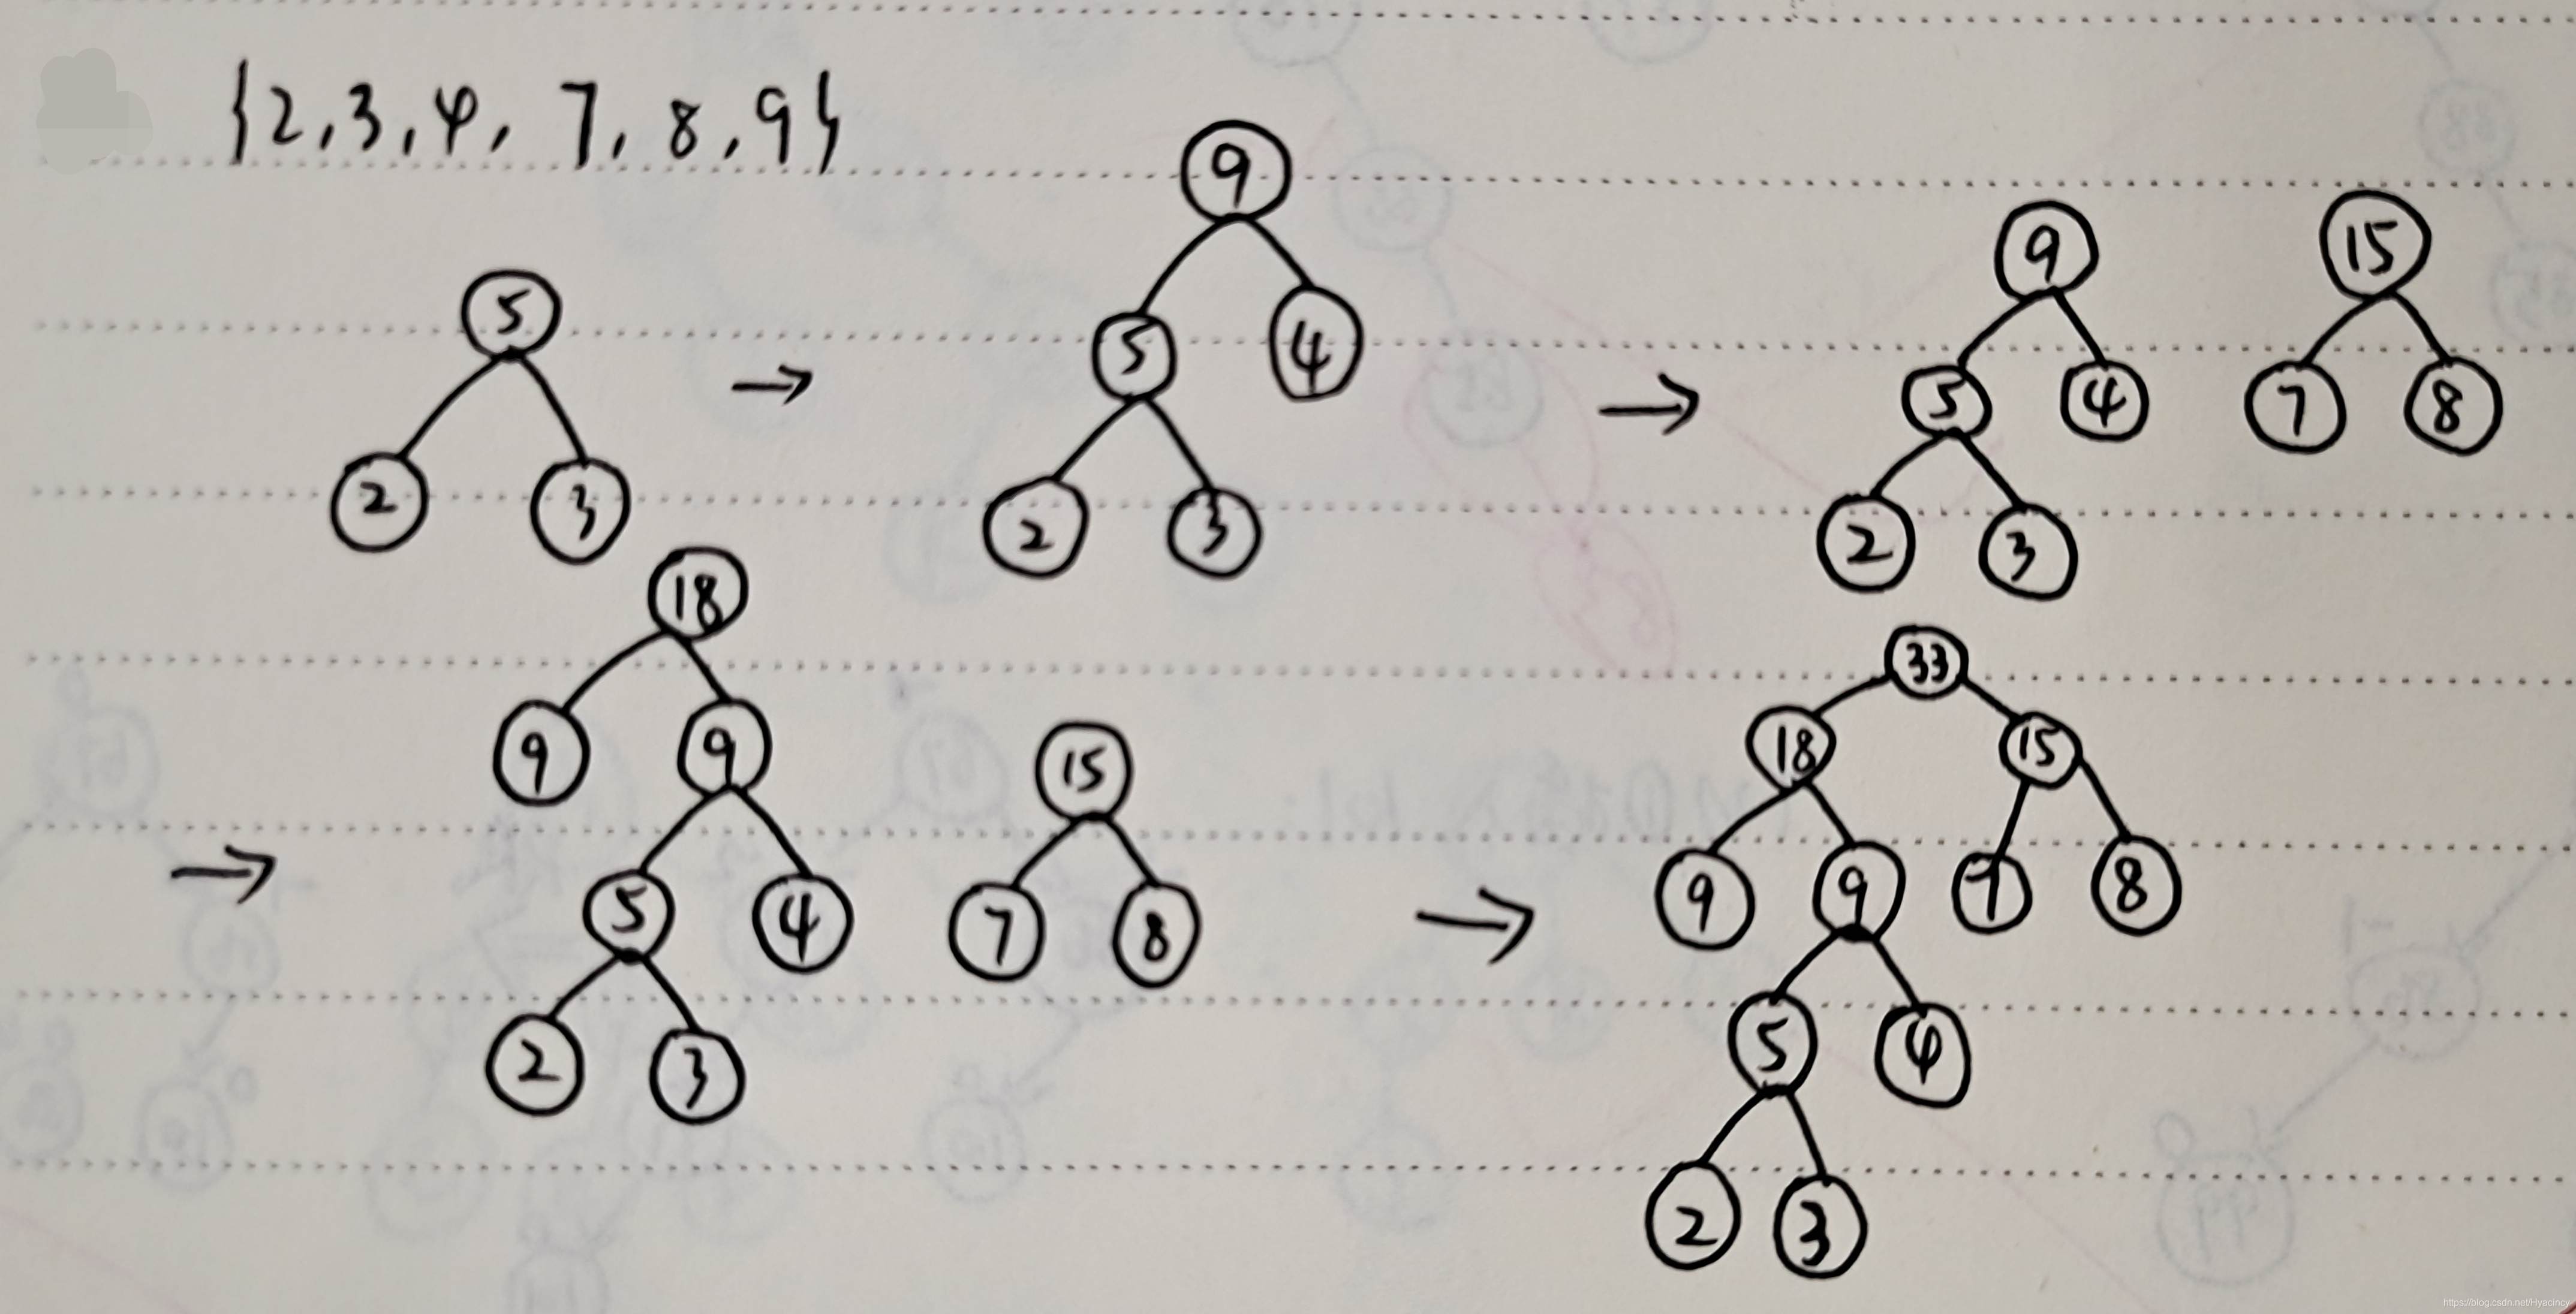 {2,3,4,7,8,9}
5
2 3
→
9
5 4
2 3
→
9 15
5 4 7 8
2 3
→
18
9 9 15
5 4 7 8
2 3
→
33
18 15
9 9 7 8
5 4
2 3
https://blog.csdn.net/Hyacincy